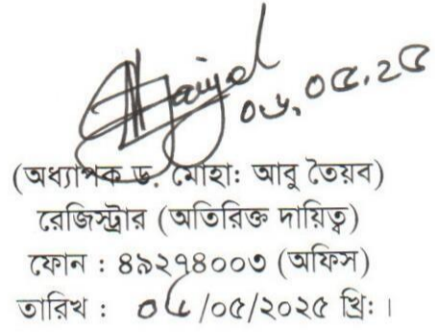 ০৬.০৫.২৫
(অধ্যাপক ড. মোহা: আবু তৈয়ব)
রেজিস্ট্রার (অতিরিক্ত দায়িত্ব)
ফোন : ৪৯২৭৪০০৩ (অফিস)
তারিখ : ০৬/০৫/২০২৫ খ্রি: ।